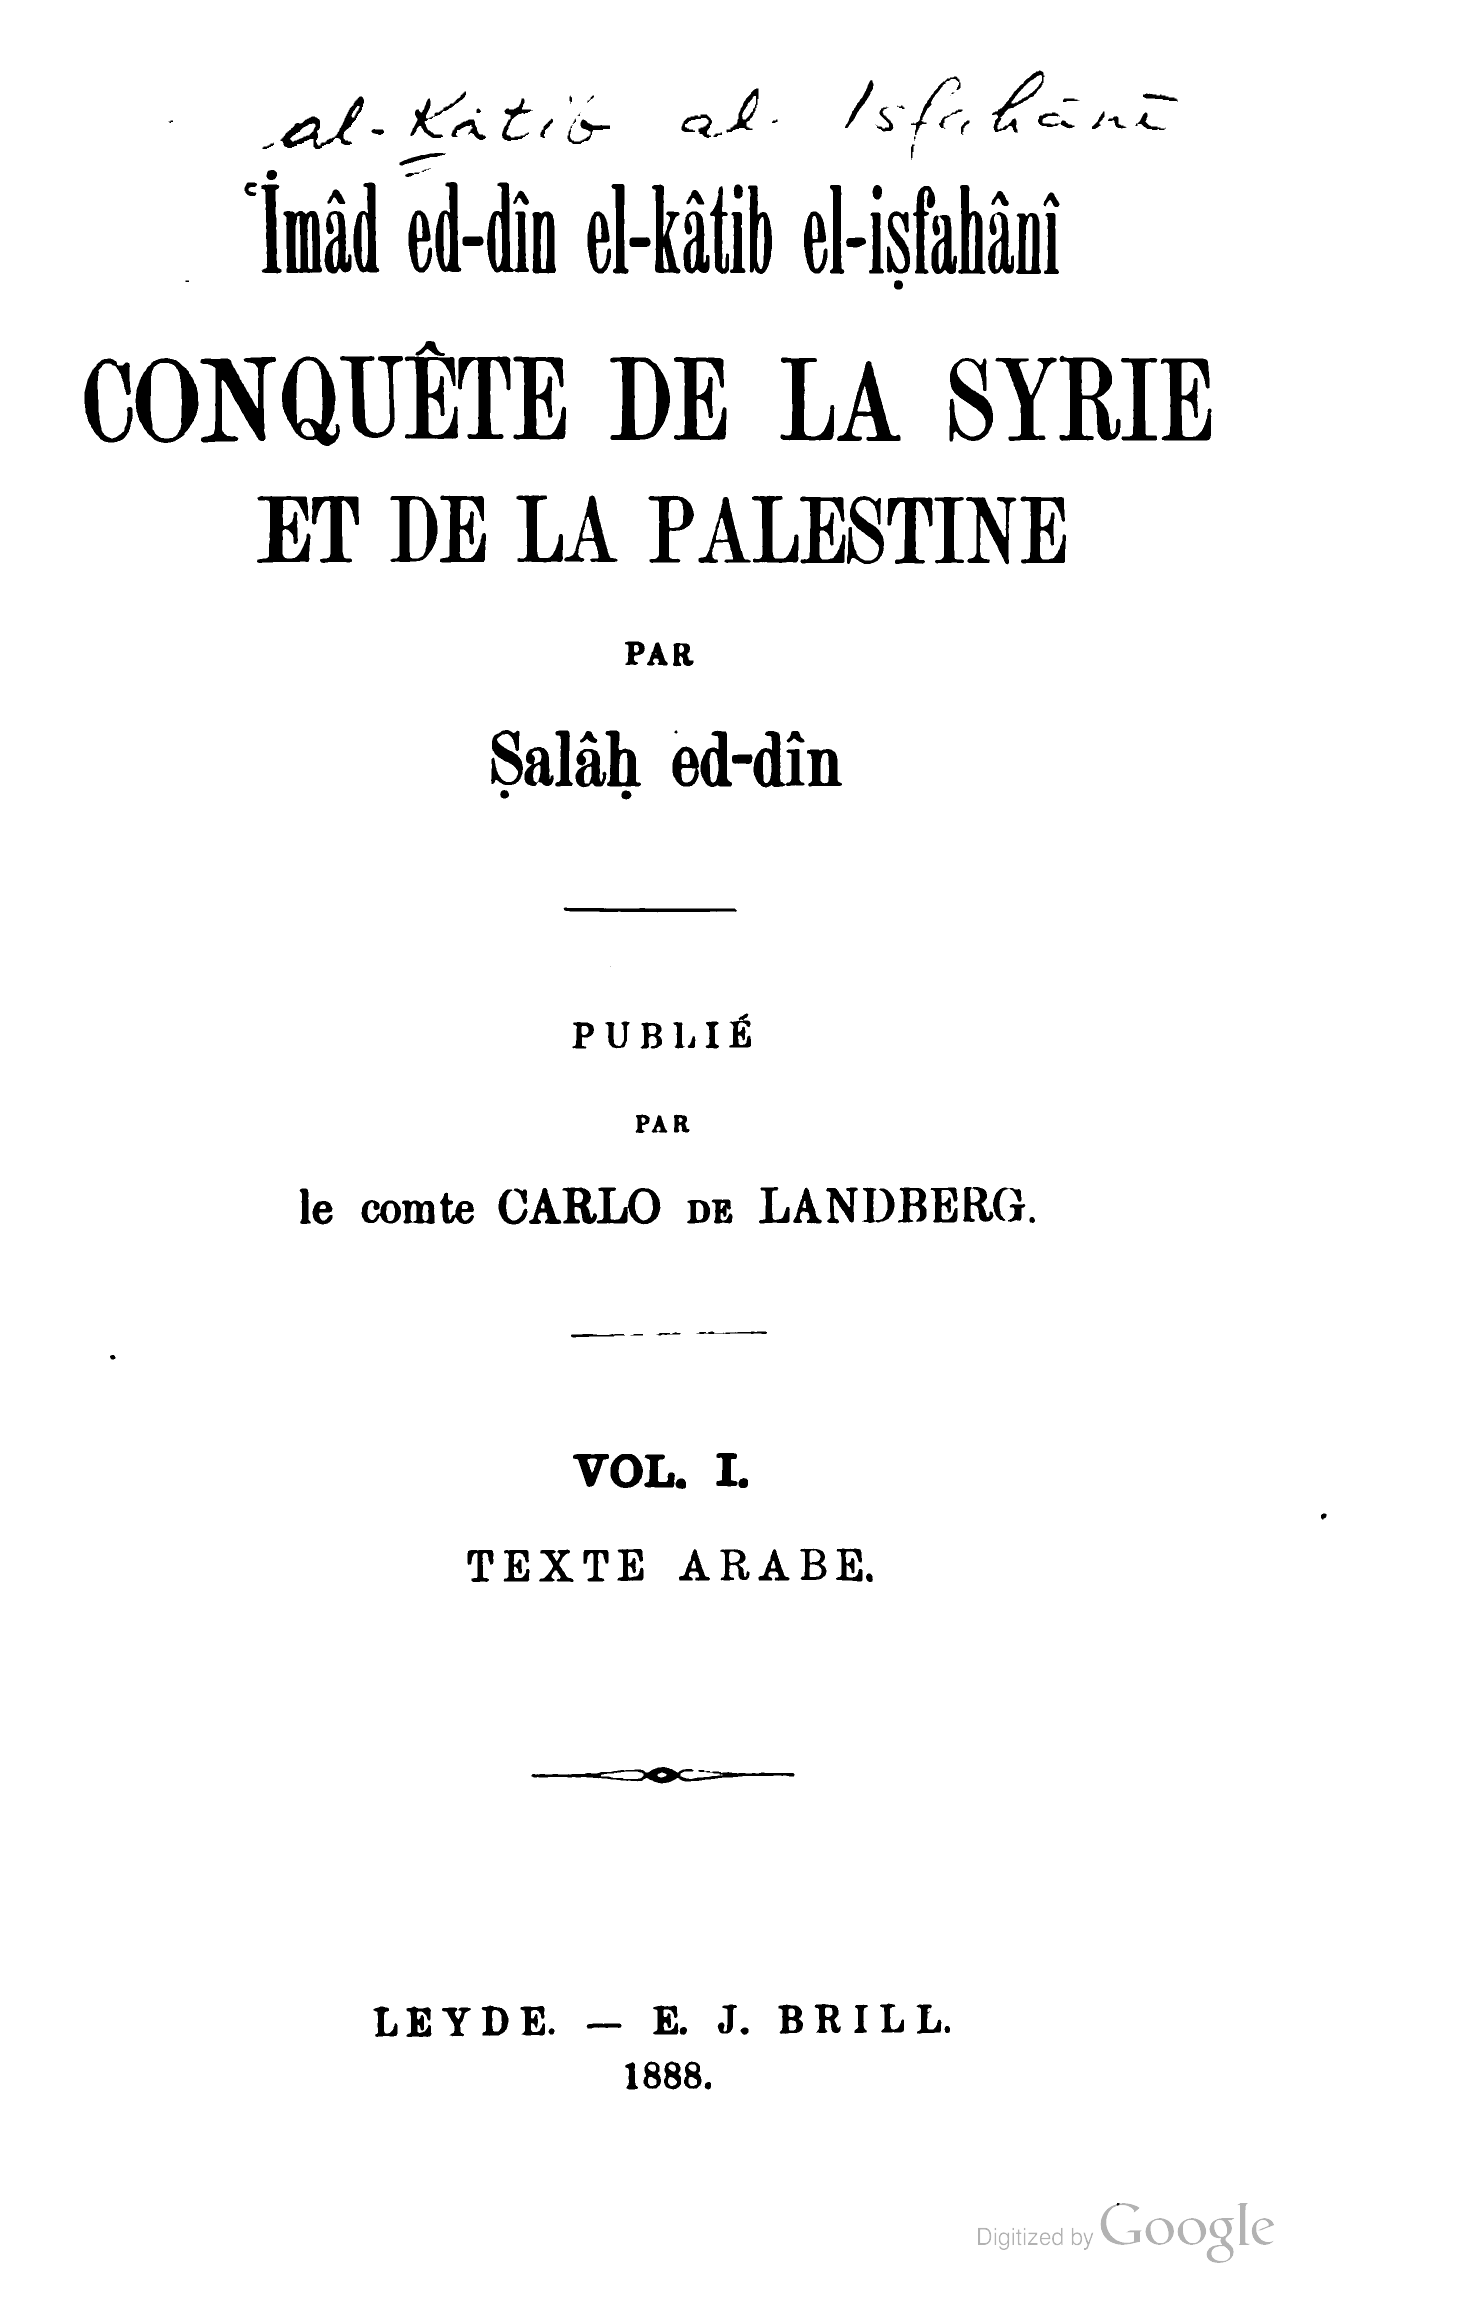 al-Kātib al-Isfahānī
ʿİmâd ed-dîn el-kâtib el-iṣfahânî
CONQUÊTE DE LA SYRIE
ET DE LA PALESTINE
PAR
Ṣalâḥ ed-dîn
PUBLIÉ
PAR
le comte CARLO DE LANDBERG.
VOL. I.
TEXTE ARABE.
LEYDE. — E. J. BRILL.
1888.
Digitized by Google